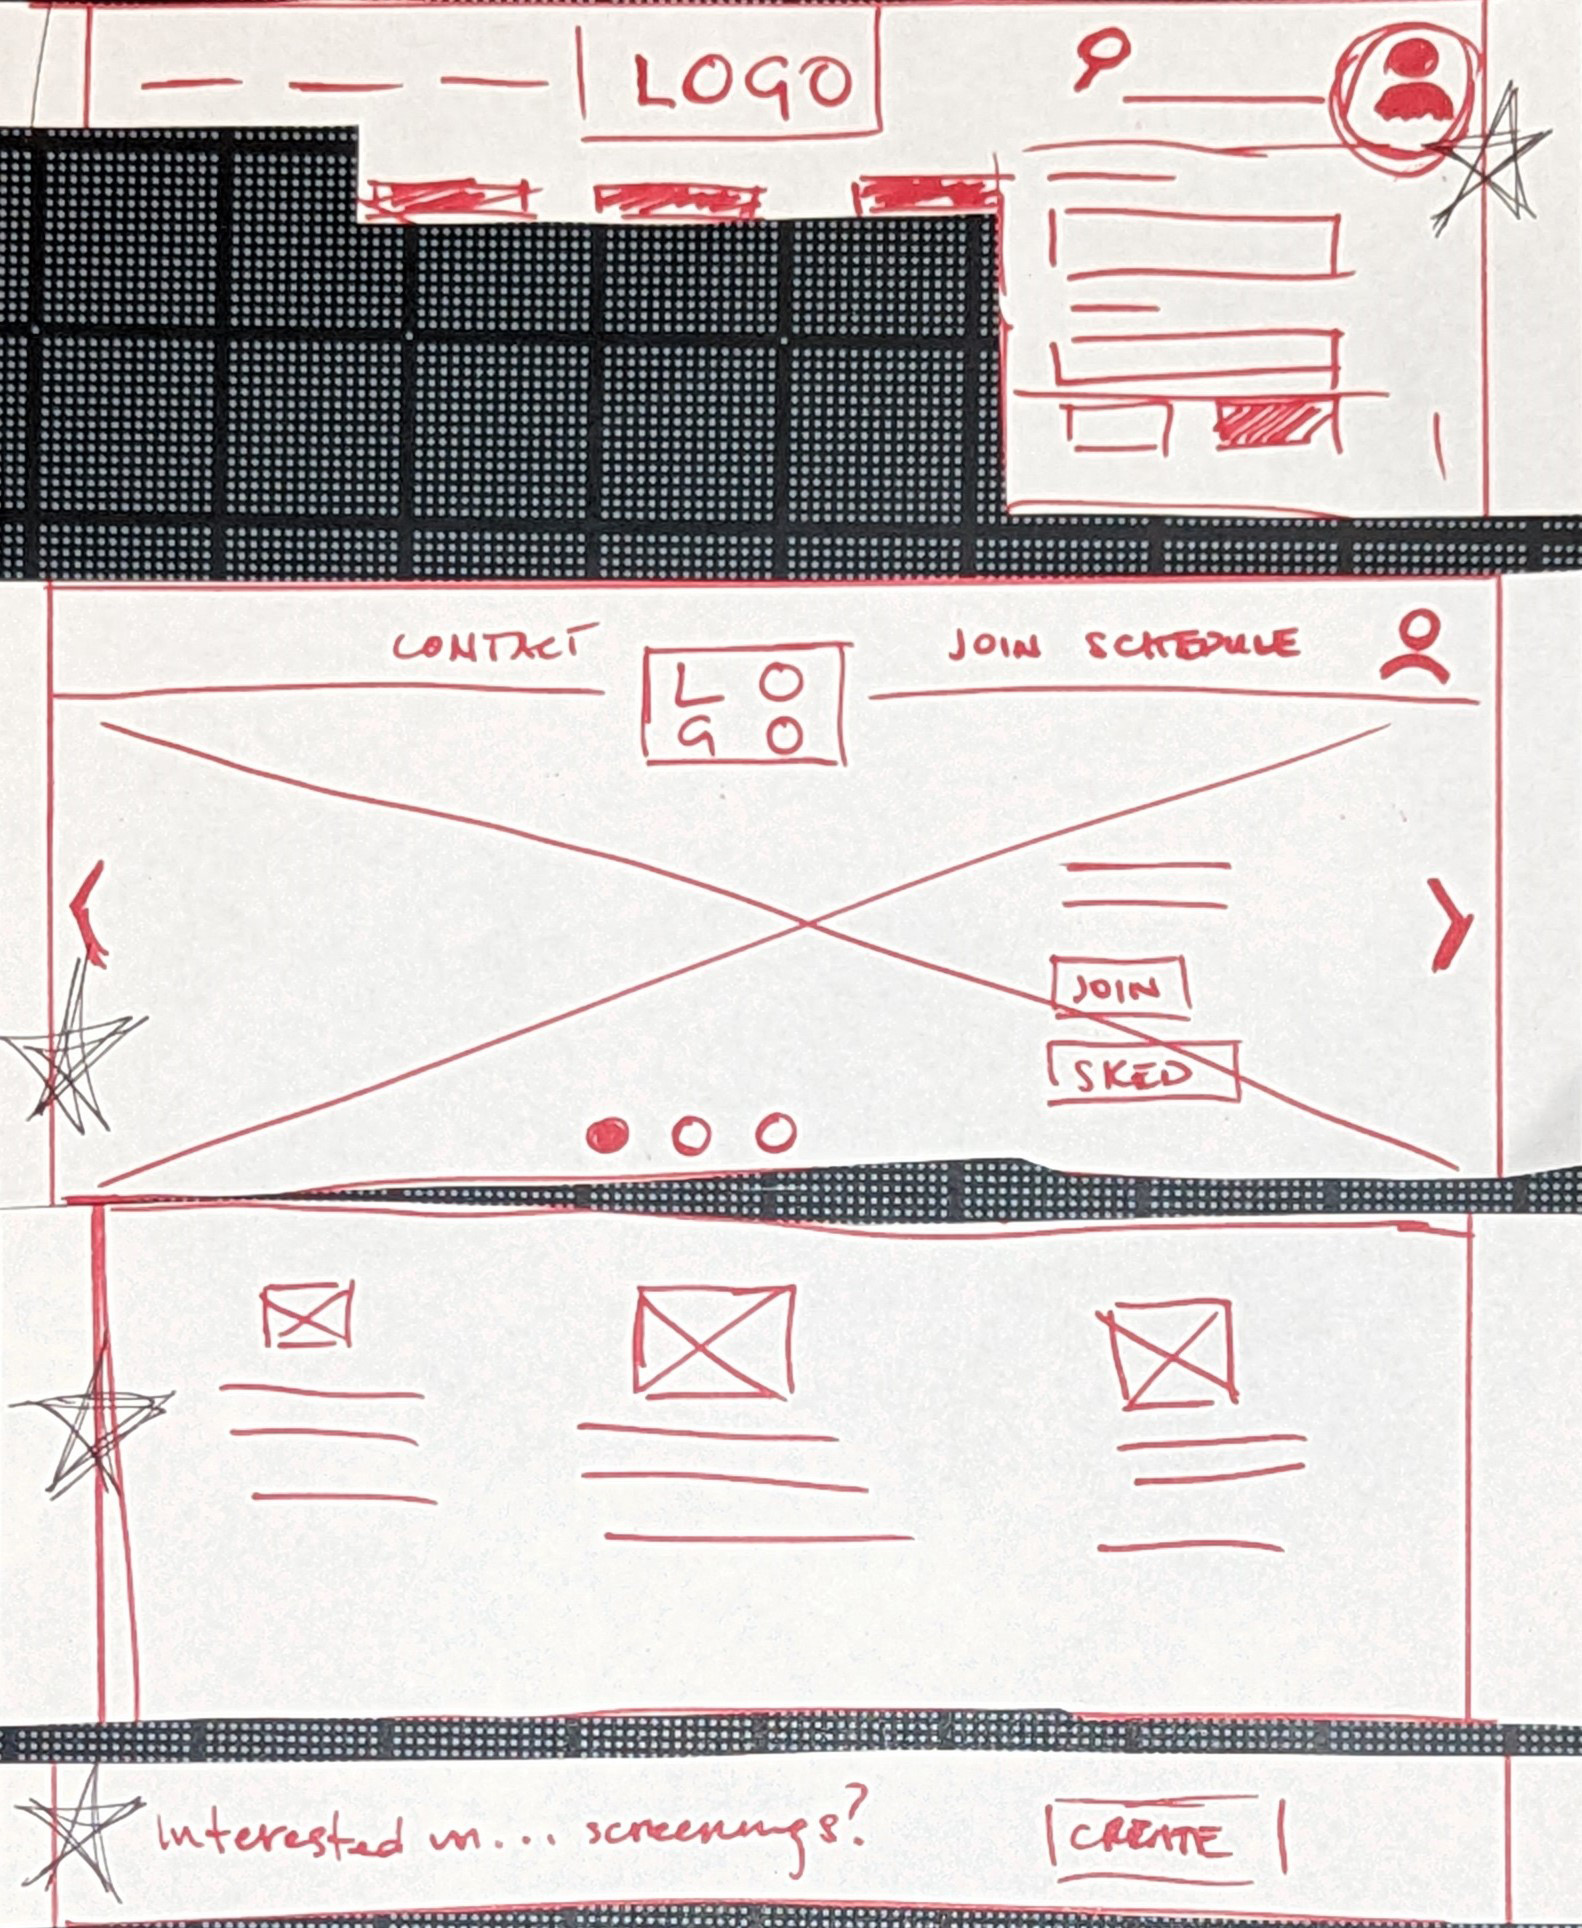 LOGO
CONTACT
JOIN SCHEDULE
L O
G O
JOIN
SKED
Interested in... screenings?
CREATE